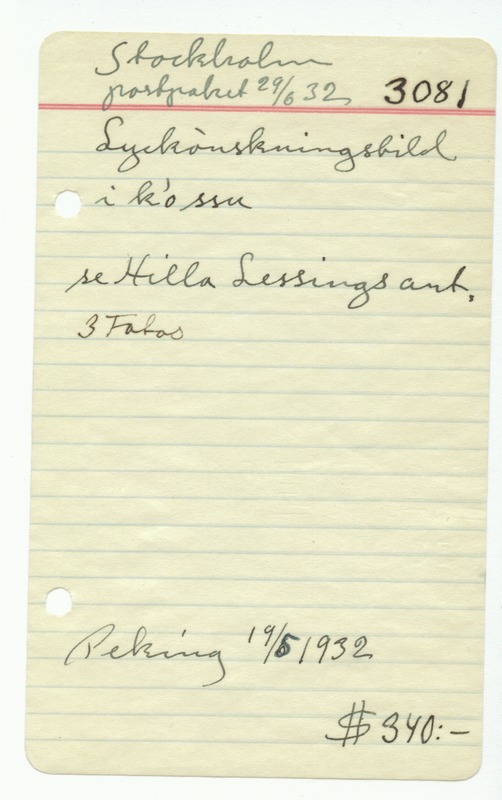 Stockholm
postpaket 29/6 32 3081
Lyckönskningsbild
i k'o ssu
se Hilla Lessings ant.
3 Fotos
Peking 19/5 1932
$ 340:-